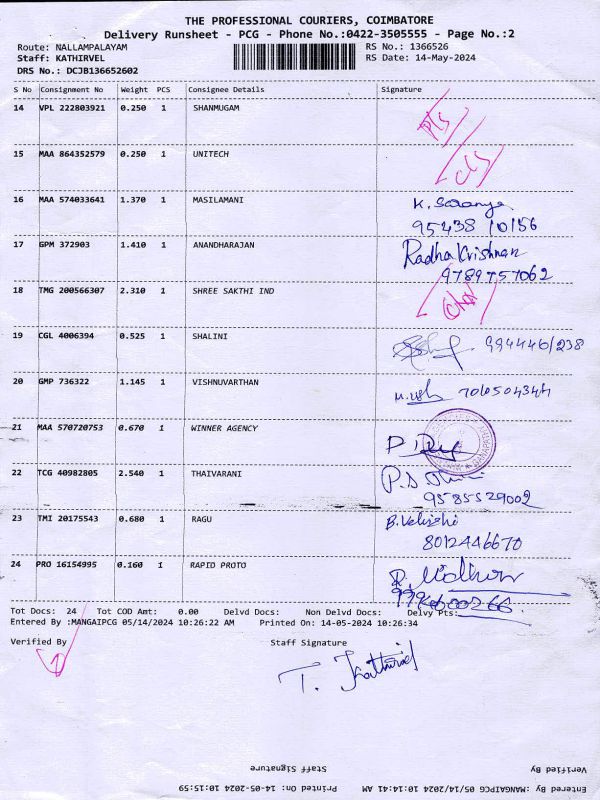 THE PROFESSIONAL COURIERS, COIMBATORE
Delivery Runsheet - PCG - Phone No.:0422-3505555 - Page No.:2
Route: NALLAMPALAYAM RS No.: 1366526
Staff: KATHIRVEL RS Date: 14-May-2024
DRS No.: DCJB136652602
S No Consignment No Weight PCS Consignee Details Signature
14 VPL 222803921 0.250 1 SHANMUGAM
15 MAA 864352579 0.250 1 UNITECH
16 MAA 574033641 1.370 1 MASILAMANI K. Saranya
95438 10156
17 GPM 372903 1.410 1 ANANDHARAJAN Radha Krishnan
9789757062
18 TMG 200566307 2.310 1 SHREE SAKTHI IND
19 CGL 4006394 0.525 1 SHALINI 9944461238
20 GMP 736322 1.145 1 VISHNUVARTHAN
21 MAA 570720753 0.670 1 WINNER AGENCY
22 TCG 40982805 2.540 1 THAIVARANI
9585529002
23 TMI 20175543 0.680 1 RAGU
8012446670
24 PRO 16154995 0.160 1 RAPID PROTO
Tot Docs: 24 Tot COD Amt: 0.00 Delvd Docs: Non Delvd Docs: Delvy Pts:
Entered By :MANGAIPCG 05/14/2024 10:26:22 AM Printed On: 14-05-2024 10:26:34
Verified By Staff Signature
T. Kathirvel
Verified By Staff Signature
Entered By :MANGAIPCG 05/14/2024 10:14:41 AM Printed On: 14-05-2024 10:15:10